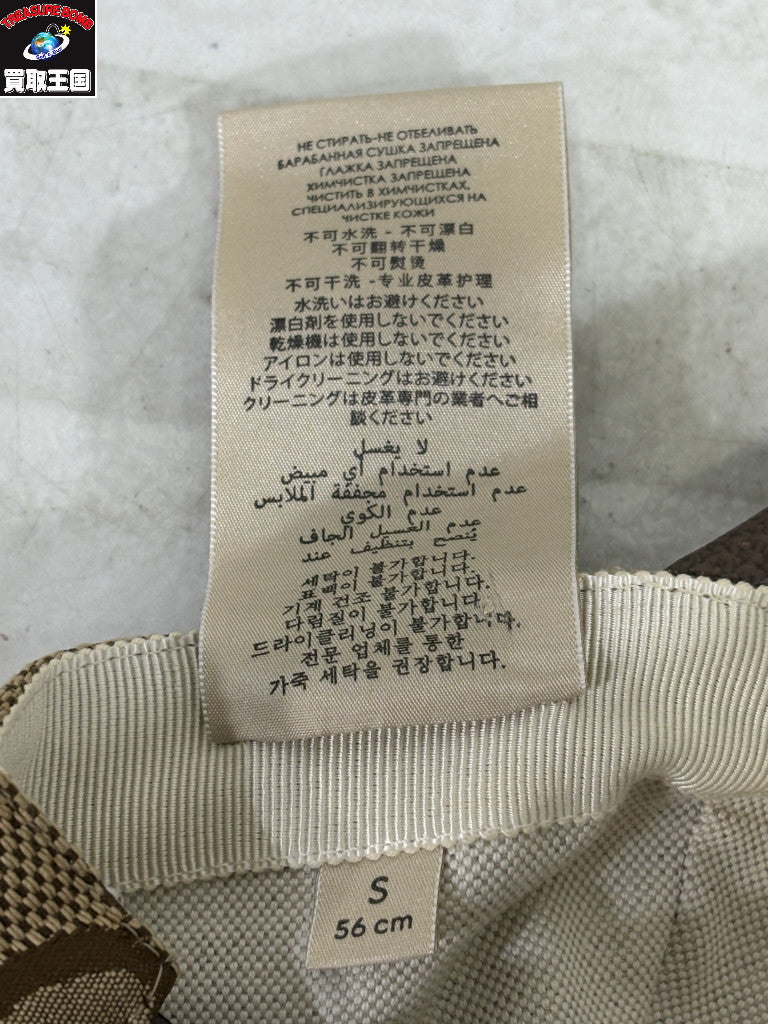 TREASURE BOMB
買取王国
НЕ СТИРАТЬ-НЕ ОТБЕЛИВАТЬ
БАРАБАННАЯ СУШКА ЗАПРЕЩЕНА
ГЛАЖКА ЗАПРЕЩЕНА
ХИМЧИСТКА ЗАПРЕЩЕНА
ЧИСТИТЬ В ХИМЧИСТКАХ,
СПЕЦИАЛИЗИРУЮЩИХСЯ НА
ЧИСТКЕ КОЖИ
不可水洗 - 不可漂白
不可翻转干燥
不可熨烫
不可干洗 -专业皮革护理
水洗いはお避けください
漂白剤を使用しないでください
乾燥機は使用しないでください
アイロンは使用しないでください
ドライクリーニングはお避けください
クリーニングは皮革専門の業者へご相
談ください
لا يغسل
عدم استخدام أي مبيض
عدم استخدام مجففة الملابس
عدم الكوي
عدم الغسيل الجاف
يُنصح بتنظيف عند
세탁이 불가합니다.
표백이 불가합니다.
기계 건조 불가합니다.
다림질이 불가합니다.
드라이클리닝이 불가합니다.
전문 업체를 통한
가죽 세탁을 권장합니다.
S
56 cm